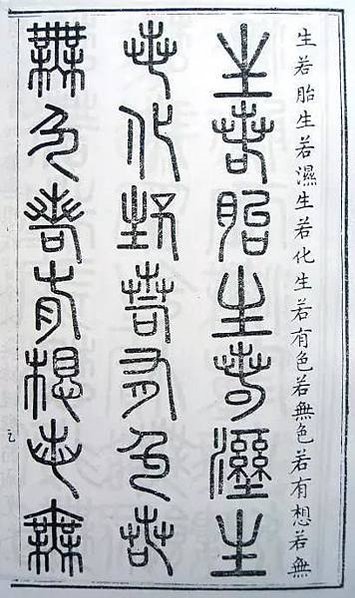 生若胎生若濕生若化生若有色若無色若有想若無
生若胎生若濕生
若化生若有色若
無色若有想若無